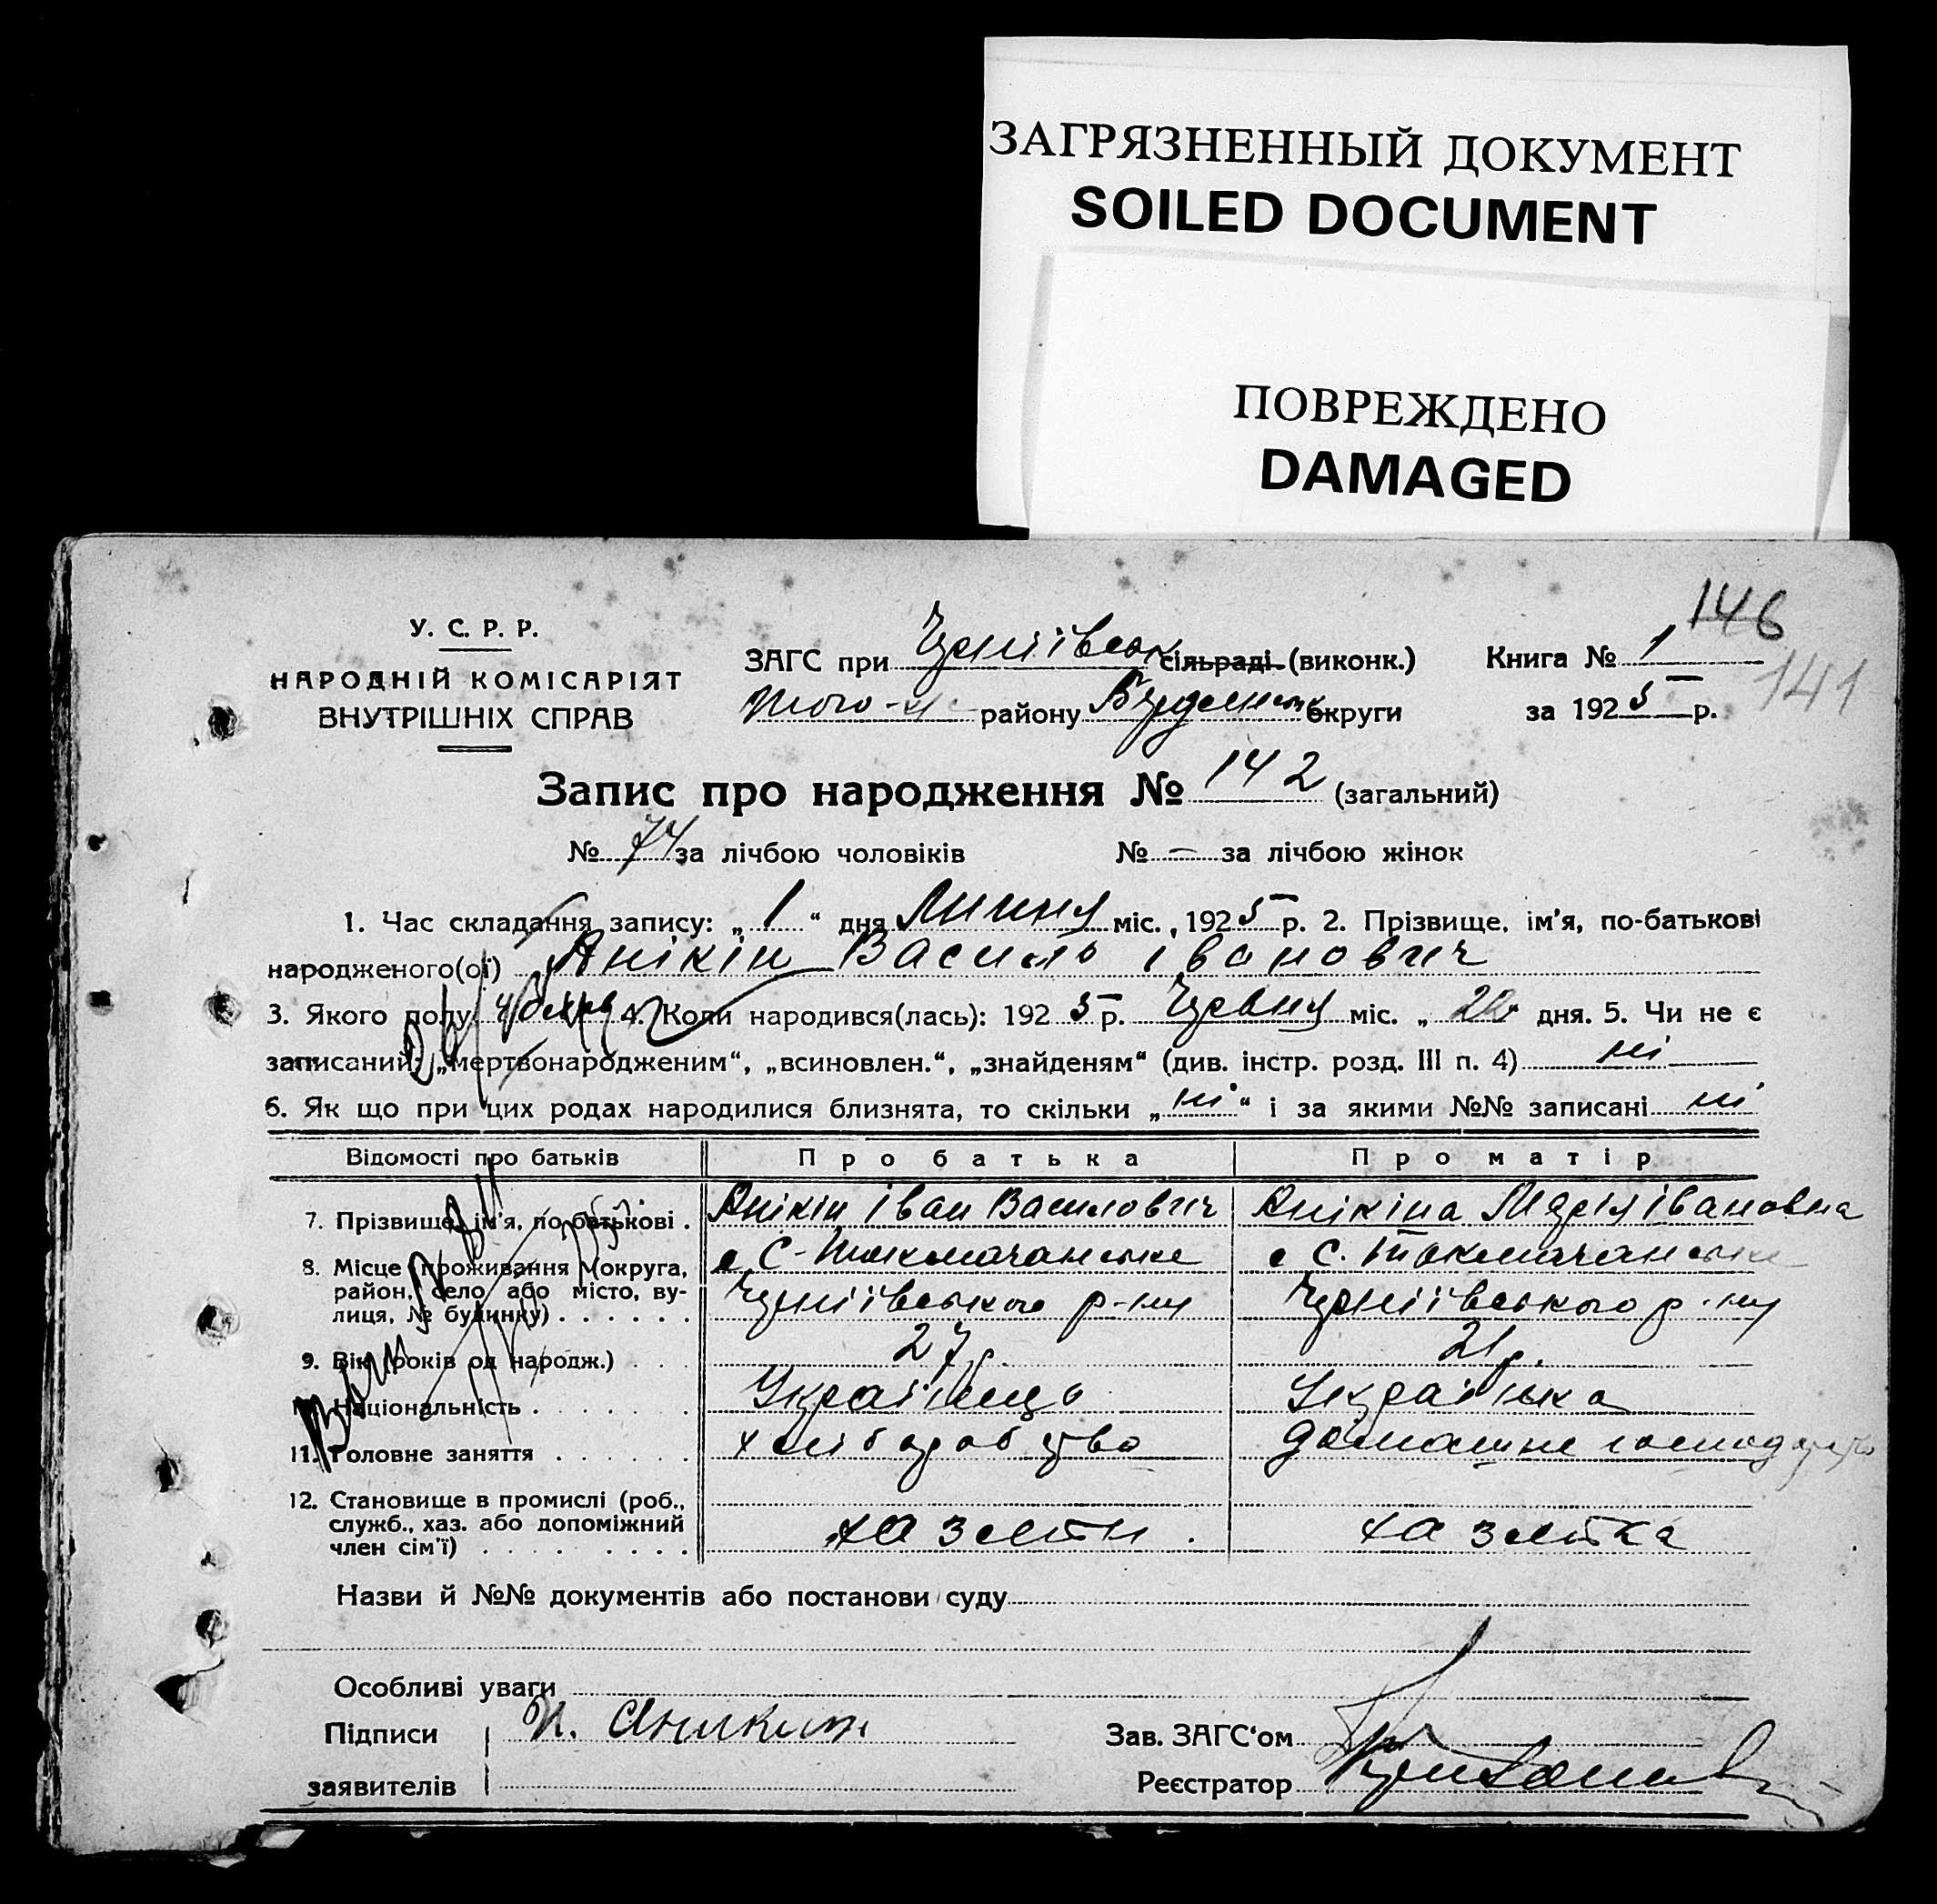 ЗАГРЯЗНЕННЫЙ ДОКУМЕНТ
SOILED DOCUMENT
ПОВРЕЖДЕНО
DAMAGED
146
141
У. С. Р. Р.
НАРОДНІЙ КОМІСАРІЯТ
ВНУТРІШНІХ СПРАВ
ЗАГС при сільраді (виконк.)
того-ж району округи
Книга № 1
за 1925 р.
Запис про народження № 142 (загальний)
№ 74 за лічбою чоловіків № – за лічбою жінок
1. Час складання запису: „ 1 “ дня Липня міс., 1925 р. 2. Прізвище, ім'я, по-батькові
народженого(ої) Анікін Василь Іванович
3. Якого полу 4. Коли народився(лась): 1925 р. Червня міс. „ дня. 5. Чи не є
записаний: „мертвонародженим“, „всиновлен.“, „знайденям“ (див. інстр. розд. III п. 4) ні
6. Як що при цих родах народилися близнята, то скільки „ ні “ і за якими №№ записані ні
Відомості про батьків Про батька Про матір
7. Прізвище, ім'я, по-батькові . Анікін Іван Василович Анікіна Марія Івановна
8. Місце проживання (округа, район, село або місто, вулиця, № будинку) . . . . . . с. Токмачанське с. Токмачанське
р-ну р-ну
9. Вік (років од народж.) . . . 27 р. 21 р.
10. Національність . . . . . . Українець Українка
11. Головне заняття . . . . . . хліборобство домашнє господарство
12. Становище в промислі (роб., служб., хаз. або допоміжний член сім'ї) . . . . . . . . хазяїн . хазяйка
Назви й №№ документів або постанови суду
Особливі уваги
Підписи И. Аникин Зав. ЗАГС‘ом
заявителів Реєстратор